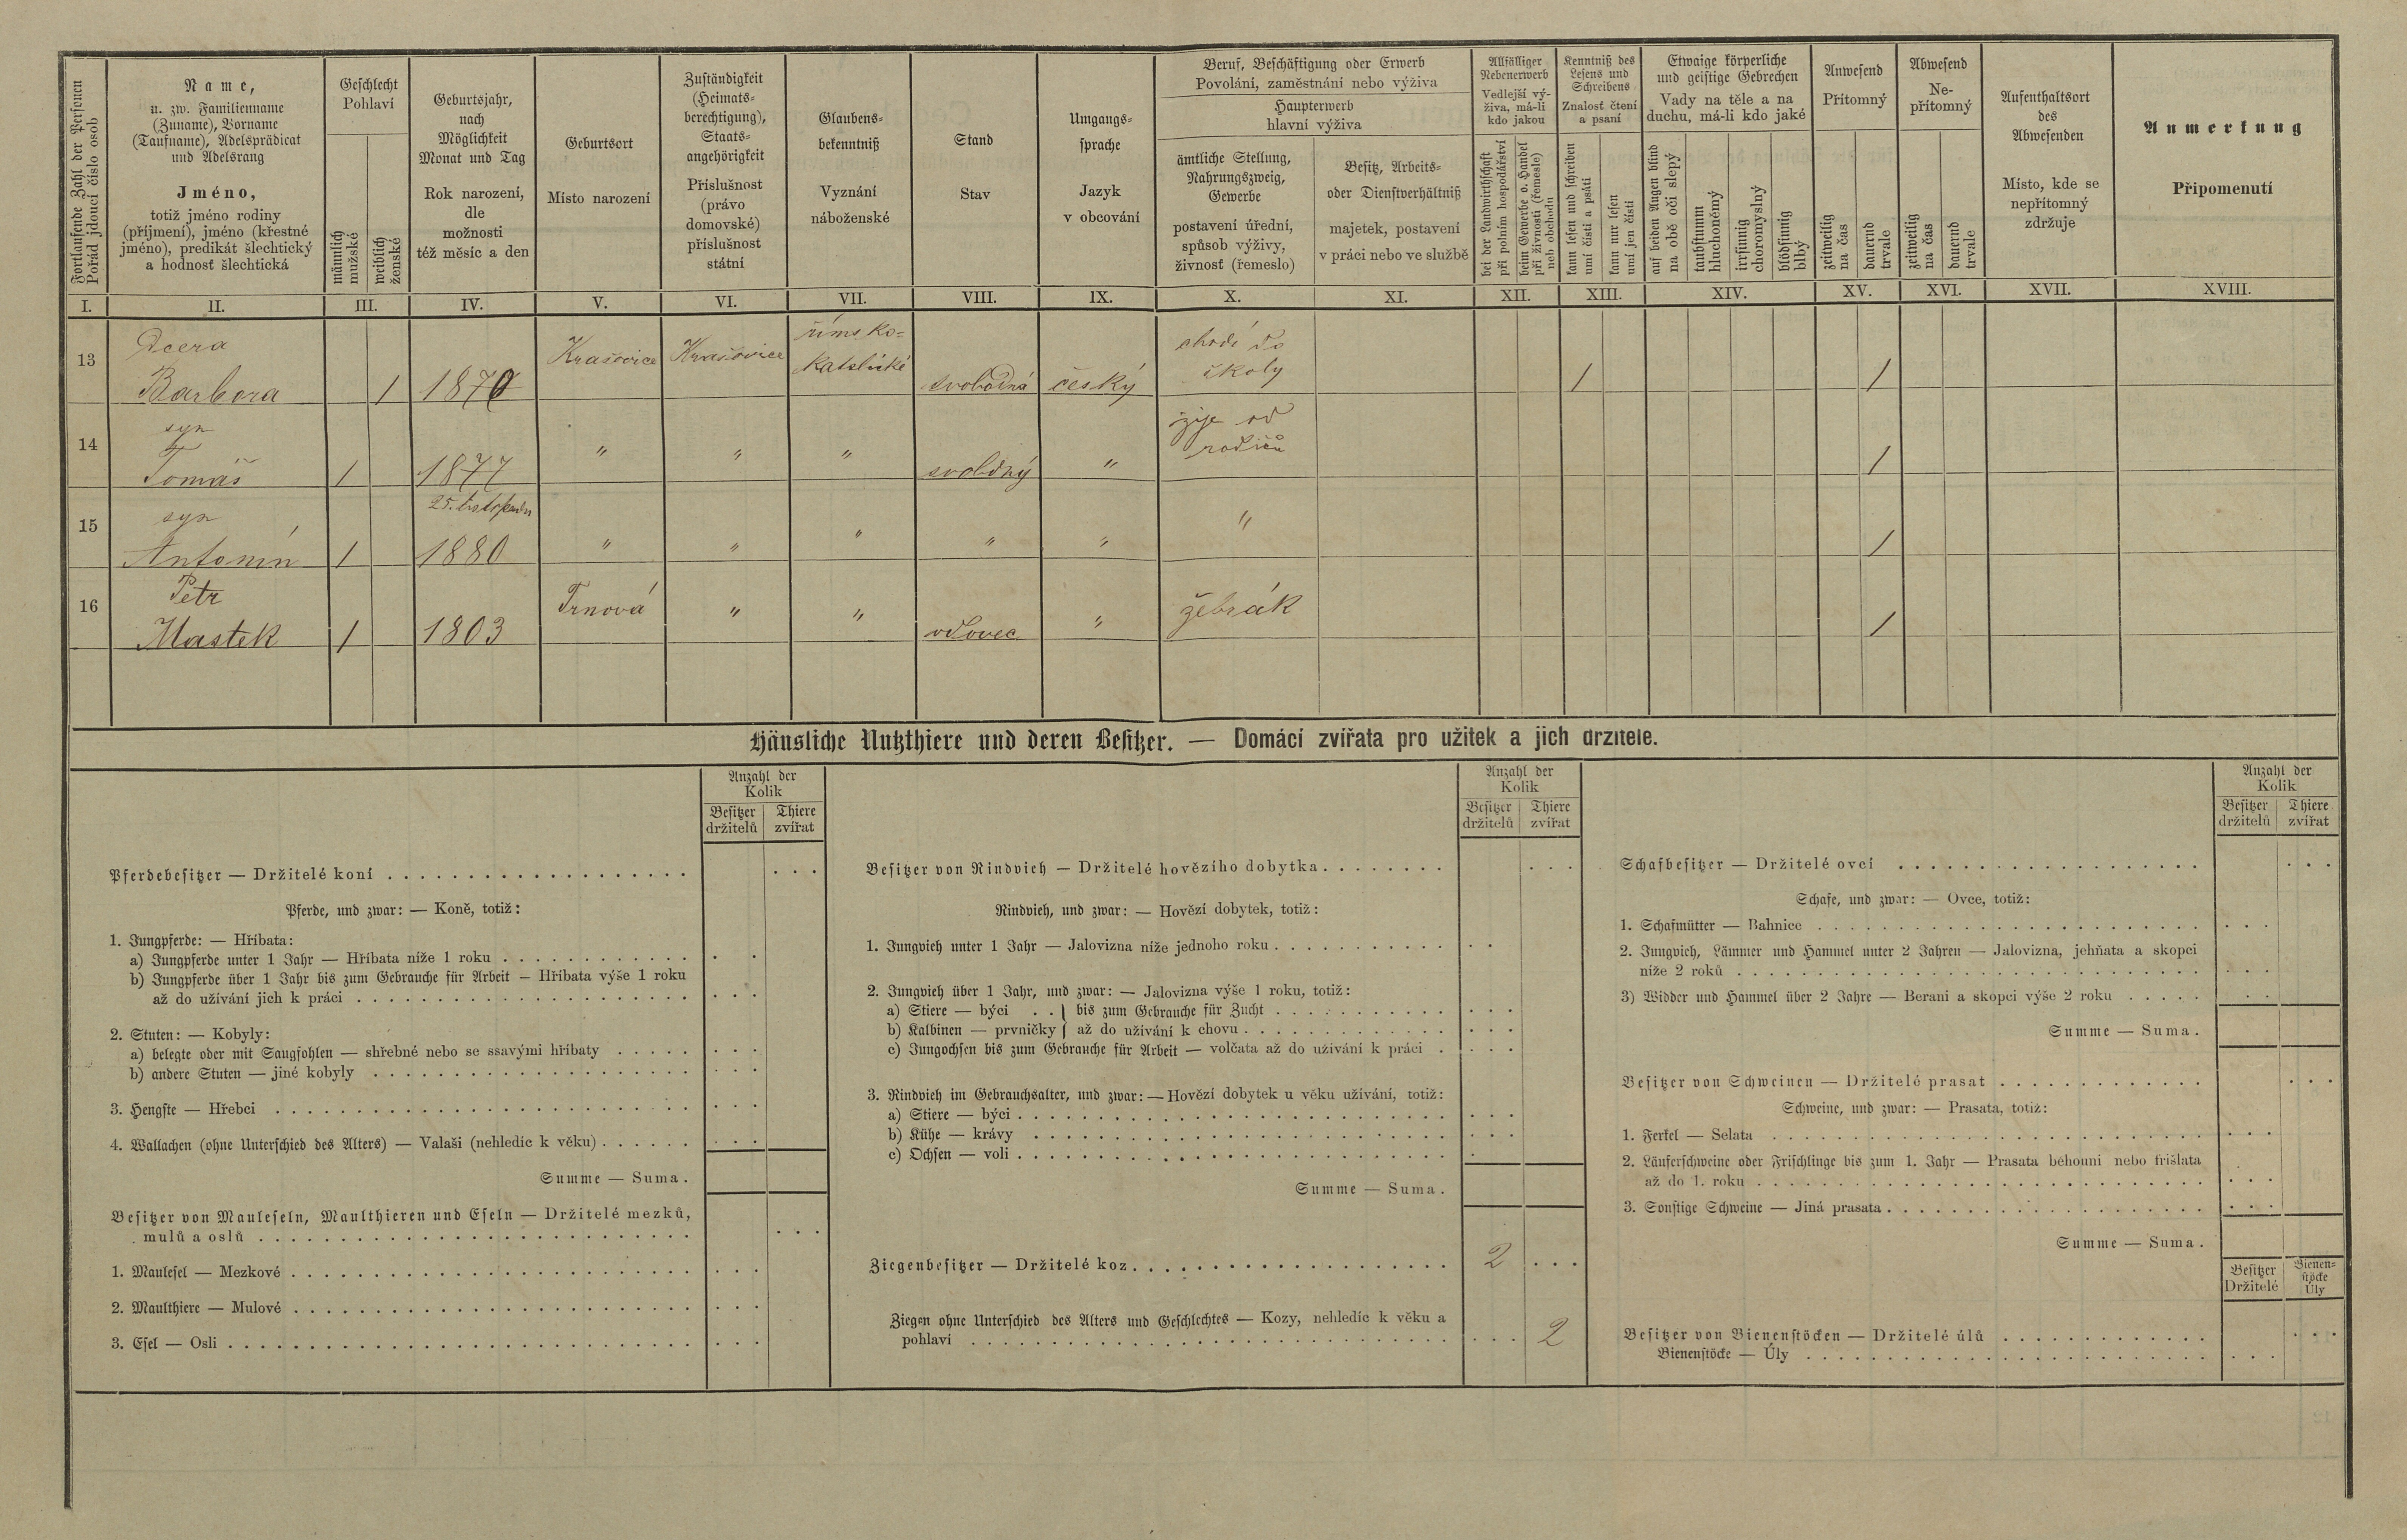 Fortlaufende Zahl der Personen
Pořád jdoucí číslo osob
Name,
u. zw. Familienname
(Zuname), Vorname
(Taufname), Adelsprädicat
und Adelsrang
Jméno,
totiž jméno rodiny
(příjmení), jméno (křestné
jméno), predikát šlechtický
a hodnosť šlechtická
Geschlecht
Pohlaví
männlich
mužské
weiblich
ženské
Geburtsjahr,
nach
Möglichkeit
Monat und Tag
Rok narození,
dle
možnosti
též měsíc a den
Geburtsort
Místo narození
Zuständigkeit
(Heimats-
berechtigung),
Staats-
angehörigkeit
Příslušnost
(právo
domovské)
příslušnost
státní
Glaubens-
bekenntniß
Vyznání
náboženské
Stand
Stav
Umgangs-
sprache
Jazyk
v obcování
Beruf, Beschäftigung oder Erwerb
Povolání, zaměstnání nebo výživa
Haupterwerb
hlavní výživa
ämtliche Stellung,
Nahrungszweig,
Gewerbe
postavení úřední,
spůsob výživy,
živnosť (řemeslo)
Besitz, Arbeits-
oder Dienstverhältniß
majetek, postavení
v práci nebo ve službě
Allfälliger
Nebenerwerb
Vedlejší vý-
živa, má-li
kdo jakou
bei der Landwirthschaft
při polním hospodářství
beim Gewerbe o. Handel
při živnosti (řemesle)
neb obchodu
Kenntniß des
Lesens und
Schreibens
Znalosť čtení
a psaní
kann lesen und schreiben
umí čísti a psáti
kann nur lesen
umí jen čísti
Etwaige körperliche
und geistige Gebrechen
Vady na těle a na
duchu, má-li kdo jaké
auf beiden Augen blind
na obě oči slepý
taubstumm
hluchoněmý
irrsinnig
choromyslný
blödsinnig
blbý
Anwesend
Přítomný
zeitweilig
na čas
dauernd
trvale
Abwesend
Ne-
přítomný
zeitweilig
na čas
dauernd
trvale
Aufenthaltsort
des
Abwesenden
Místo, kde se
nepřítomný
zdržuje
Anmerkung
Připomenutí
I. II. III. IV. V. VI. VII. VIII. IX. X. XI. XII. XIII. XIV. XV. XVI. XVII. XVIII.
13 Dcera Barbora 1 1870 Krašovice Krašovice římsko-katolické svobodná český chodí do školy 1 1
14 syn Tomáš 1 1877 " " " svobdný " žije od rodičů 1
15 syn Antonín 1 25. listopadu 1880 " " " " " " 1
16 Petr Mastek 1 1803 Trnová " " vdovec " žebrák 1
Häusliche Nutzthiere und deren Besitzer. — Domácí zvířata pro užitek a jich držitelé.
Anzahl der
Kolik
Besitzer
držitelů
Thiere
zvířat
Pferdebesitzer — Držitelé koní
Pferde, und zwar: — Koně, totiž:
1. Jungpferde: — Hříbata:
a) Jungpferde unter 1 Jahr — Hříbata níže 1 roku
b) Jungpferde über 1 Jahr bis zum Gebrauche für Arbeit — Hříbata výše 1 roku
až do užívání jich k práci
2. Stuten: — Kobyly:
a) belegte oder mit Saugfohlen — shřebné nebo se ssavými hříbaty
b) andere Stuten — jiné kobyly
3. Hengste — Hřebci
4. Wallachen (ohne Unterschied des Alters) — Valaši (nehledíc k věku)
Summe — Suma.
Besitzer von Mauleseln, Maulthieren und Eseln — Držitelé mezků,
mulů a oslů
1. Maulesel — Mezkové
2. Maulthiere — Mulové
3. Esel — Osli
Anzahl der
Kolik
Besitzer
držitelů
Thiere
zvířat
Besitzer von Rindvieh — Držitelé hovězího dobytka
Rindvieh, und zwar: — Hovězí dobytek, totiž:
1. Jungvieh unter 1 Jahr — Jalovizna níže jednoho roku
2. Jungvieh über 1 Jahr, und zwar: — Jalovizna výše 1 roku, totiž:
a) Stiere — býci . . } bis zum Gebrauche für Zucht
b) Kalbinen — prvničky } až do užívání k chovu
c) Jungochsen bis zum Gebrauche für Arbeit — volčata až do užívání k práci
3. Rindvieh im Gebrauchsalter, und zwar: — Hovězí dobytek u věku užívání, totiž:
a) Stiere — býci
b) Kühe — krávy
c) Ochsen — voli
Summe — Suma.
Ziegenbesitzer — Držitelé koz 2
Ziegen ohne Unterschied des Alters und Geschlechtes — Kozy, nehledíc k věku a
pohlaví 2
Anzahl der
Kolik
Besitzer
držitelů
Thiere
zvířat
Schafbesitzer — Držitelé ovcí
Schafe, und zwar: — Ovce, totiž:
1. Schafmütter — Bahnice
2. Jungvieh, Lämmer und Hammel unter 2 Jahren — Jalovizna, jehňata a skopci
níže 2 roků
3) Widder und Hammel über 2 Jahre — Berani a skopci výše 2 roku
Summe — Suma.
Besitzer von Schweinen — Držitelé prasat
Schweine, und zwar: — Prasata, totiž:
1. Ferkel — Selata
2. Läuferschweine oder Frischlinge bis zum 1. Jahr — Prasata běhouni nebo frišlata
až do 1. roku
3. Sonstige Schweine — Jiná prasata
Summe — Suma.
Besitzer
Držitelé
Bienen-
stöcke
Úly
Besitzer von Bienenstöcken — Držitelé úlů
Bienenstöcke — Úly